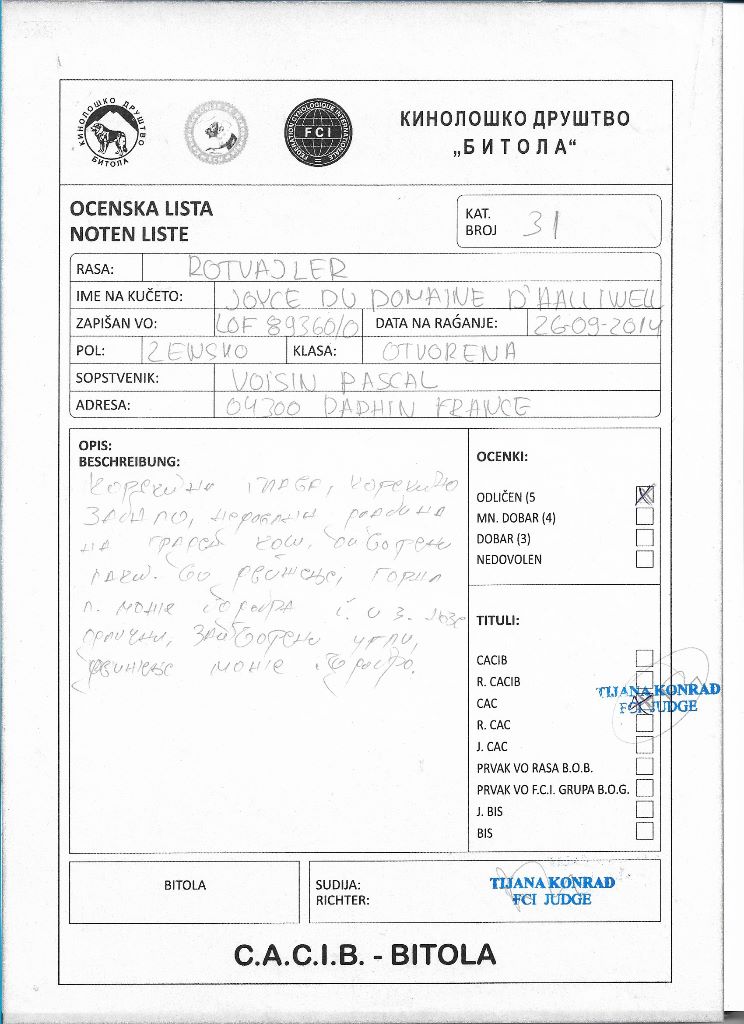 КИНОЛОШКО ДРУШТВО
БИТОЛА
FEDERATION CYNOLOGIQUE INTERNATIONALE
FCI
КИНОЛОШКО ДРУШТВО
„БИТОЛА“
OCENSKA LISTA
NOTEN LISTE
KAT.
BROJ 31
RASA: ROTVAJLER
IME NA KUČETO: JOYCE DU DOMAINE D'HALLIWELL
ZAPIŠAN VO: LOF 89360/0 DATA NA RAǴANJE: 26-09-2014
POL: ZENSKO KLASA: OTVORENA
SOPSTVENIK: VOISIN PASCAL
ADRESA: 04300 DAPHIN FRANCE
OPIS:
BESCHREIBUNG:
глава,
на граден кош.
во движење, горна
л. може подобра и з.
одлични,
движење може подобро.
OCENKI:
ODLIČEN (5
MN. DOBAR (4)
DOBAR (3)
NEDOVOLEN
TITULI:
CACIB
R. CACIB
CAC
R. CAC
J. CAC
PRVAK VO RASA B.O.B.
PRVAK VO F.C.I. GRUPA B.O.G.
J. BIS
BIS
TIJANA KONRAD
FCI JUDGE
BITOLA
SUDIJA:
RICHTER:
TIJANA KONRAD
FCI JUDGE
C.A.C.I.B. - BITOLA